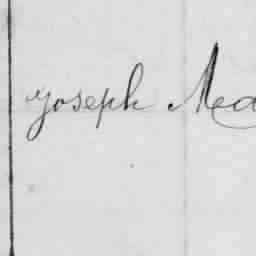 Joseph Mea